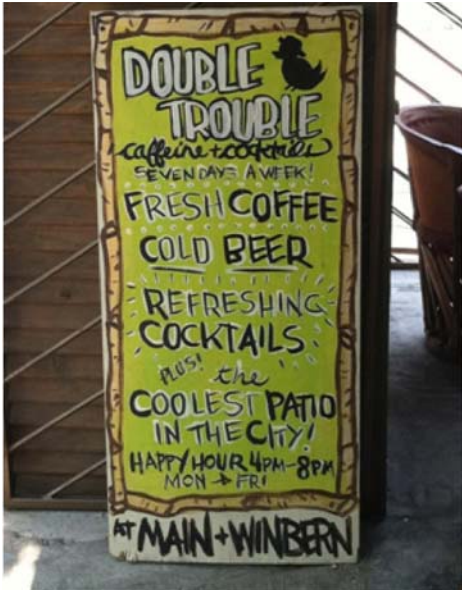 DOUBLE
TROUBLE
caffeine + cocktails
SEVEN DAYS A WEEK!
FRESH COFFEE
COLD BEER
REFRESHING
COCKTAILS
PLUS! the
COOLEST PATIO
IN THE CITY!
HAPPY HOUR 4PM-8PM
MON → FRI
AT MAIN + WINBERN